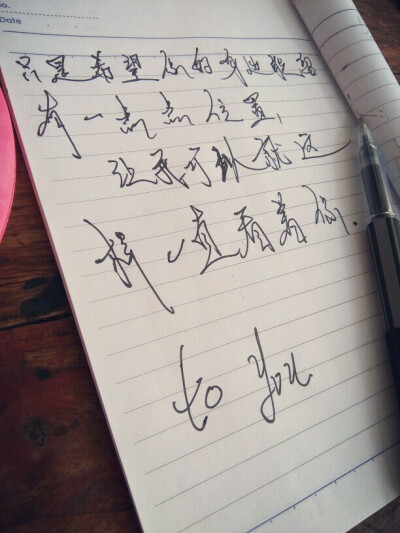 No.
Date
只是希望你的身边
有一点点位置,
让我可以就这
样一直看着你.
to you